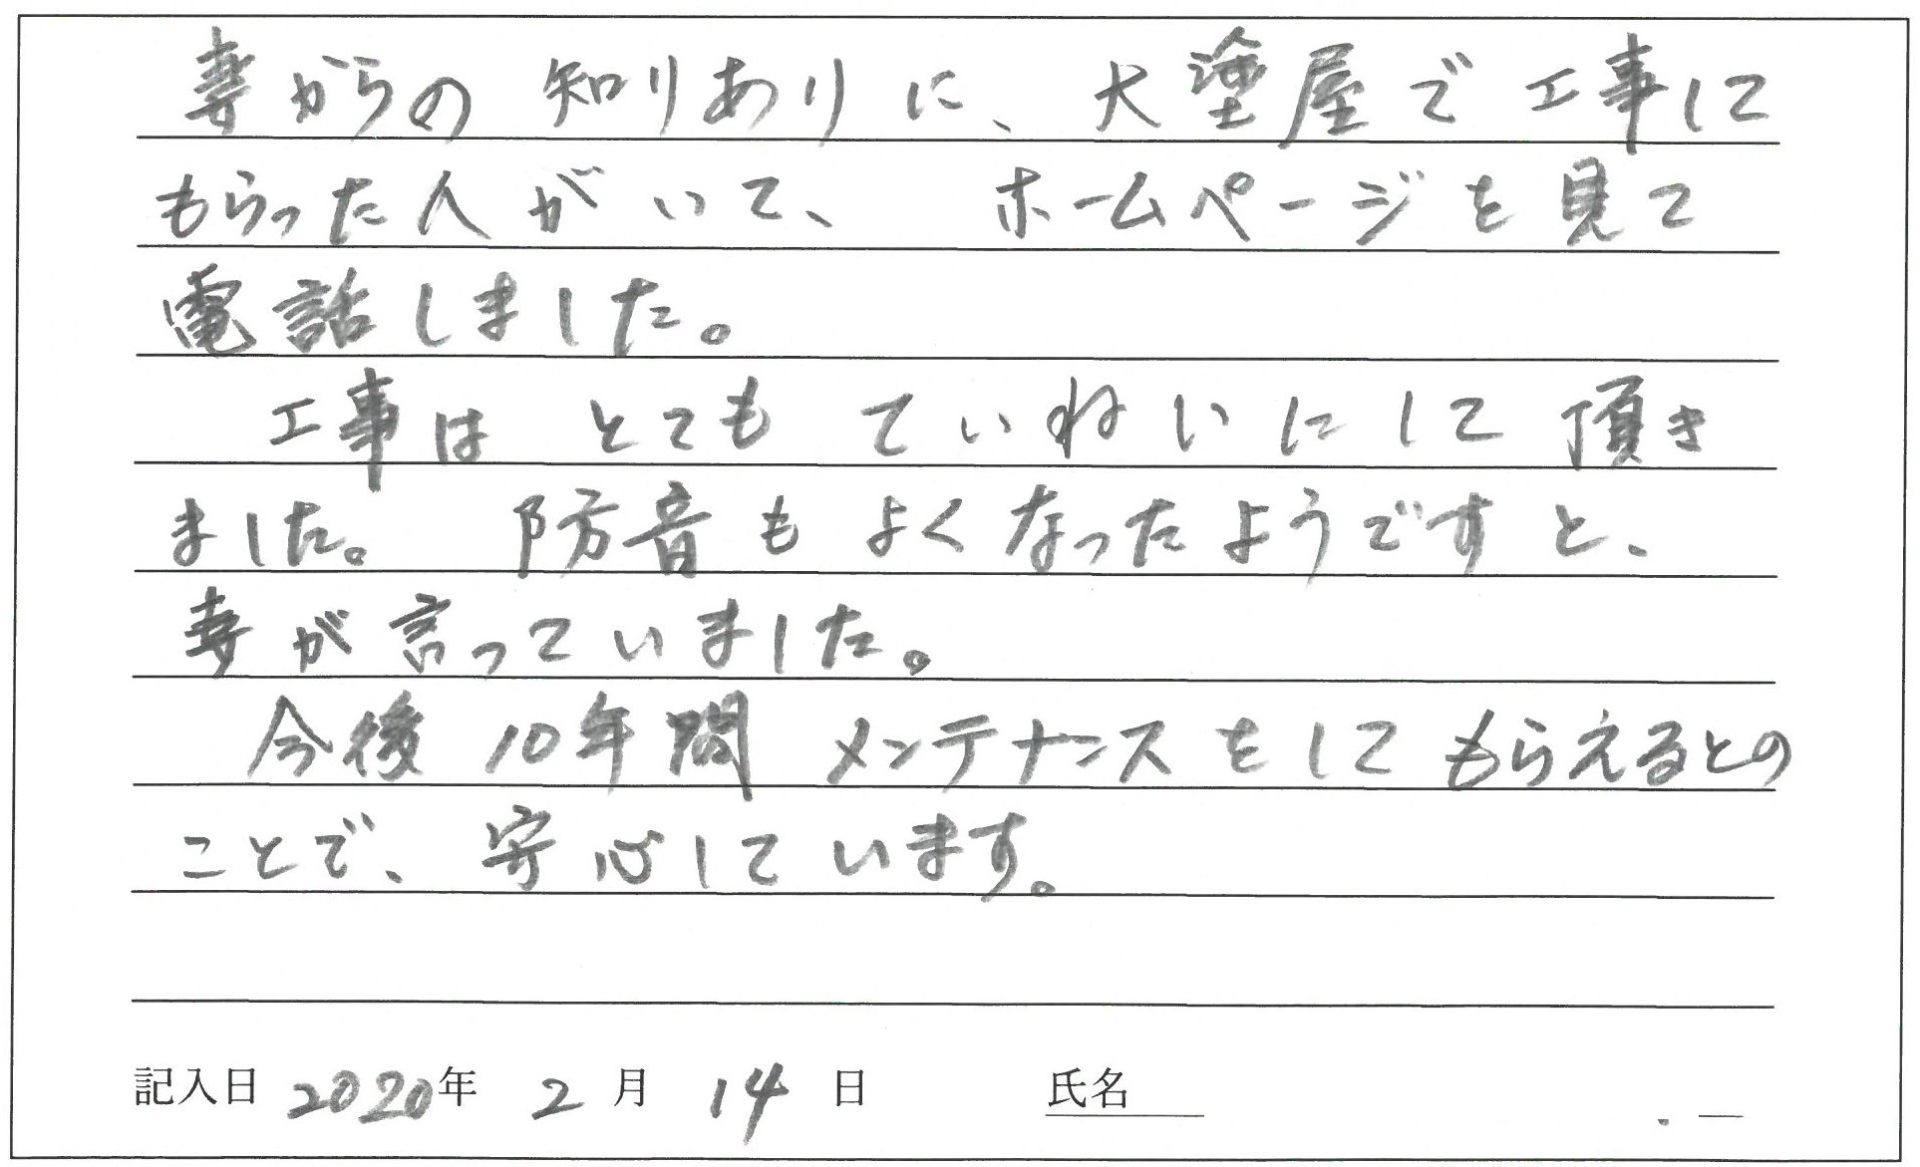 妻からの知りありに、大塗屋で工事して
もらった人がいて、 ホームページを見て
電話しました。
工事は とても ていねいにして頂き
ました。 防音もよくなったようですと、
妻が言っていました。
今後10年間メンテナンスをしてもらえるとの
ことで、安心しています。
記入日 2020年 2月 14日 氏名